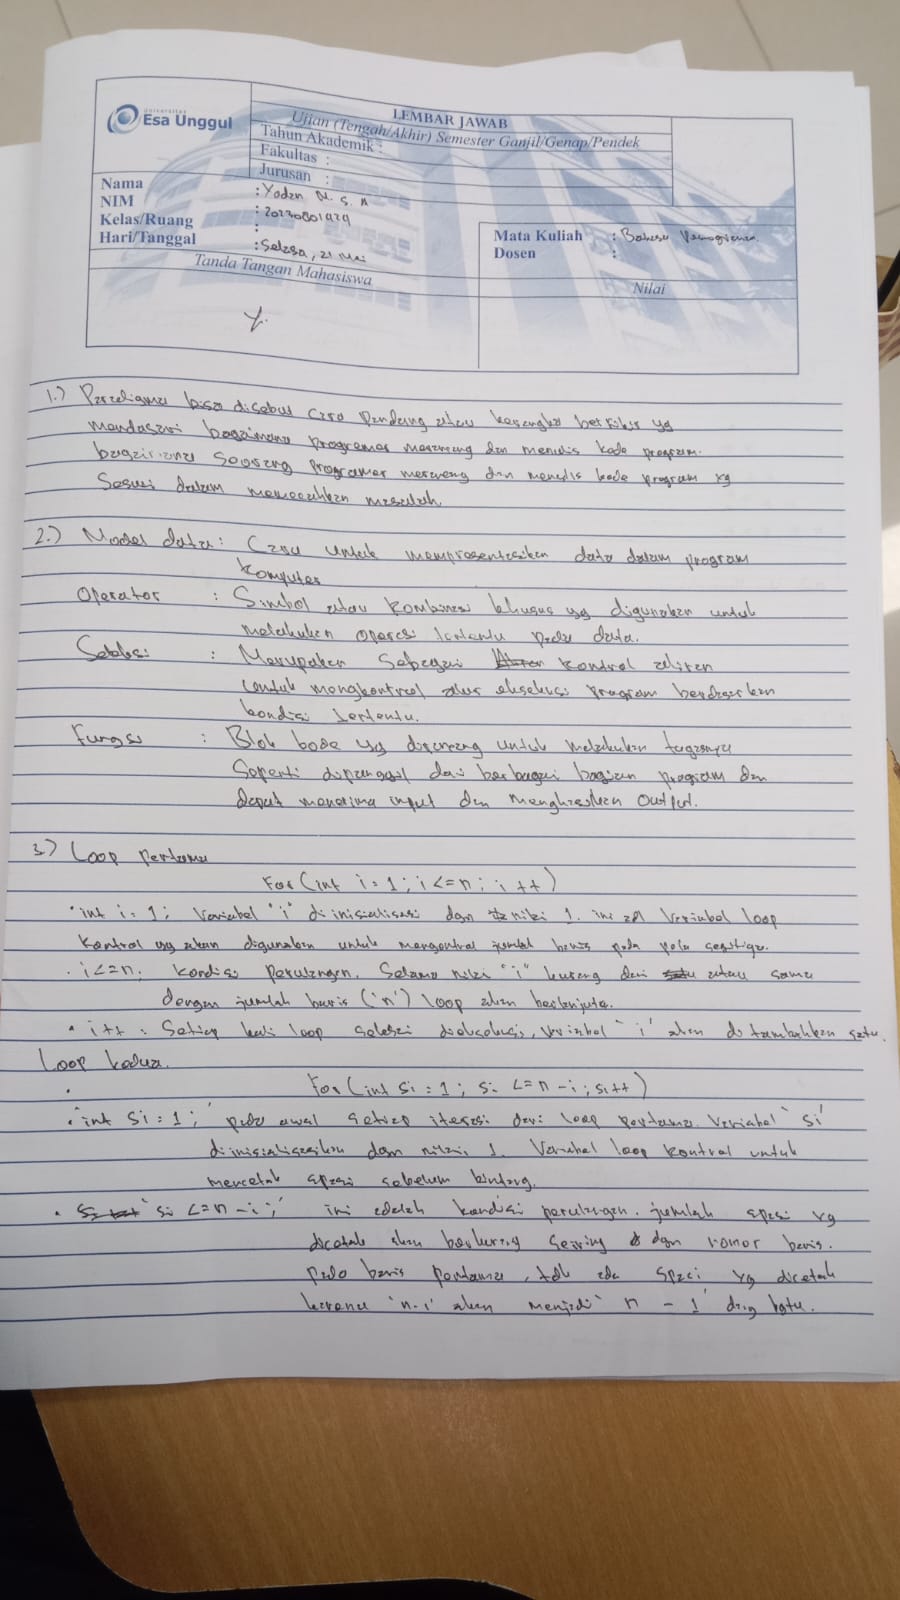 Universitas
Esa Unggul
LEMBAR JAWAB
Ujian (Tengah/Akhir) Semester Ganjil/Genap/Pendek
Tahun Akademik :
Fakultas :
Jurusan :
Nama : Yodan N. S. A
NIM : 20230801424
Kelas/Ruang :
Hari/Tanggal : Selasa, 21 Mei
Mata Kuliah : Bahasa
Dosen :
Tanda Tangan Mahasiswa
Nilai
1.) Paradigma bisa disebut cara pandang atau kerangka berfikir yg
mendasari bagaimana programer merancang dan menulis kode program.
bagaimana seorang programer merancang dan menulis kode program yg
Sesuai dalam memecahkan masalah.
2.) Model data : Cara untuk mempresentasikan data dalam program
komputer
Operator : Simbol atau kombinasi khusus yg digunakan untuk
melakukan operasi tertentu pada data.
Seleksi : Merupakan Sebagai kontrol aliran
untuk mengkontrol alur eksekusi program berdasarkan
kondisi tertentu.
Fungsi : Blok kode yg dirancang untuk melakukan tugasnya
Seperti dipanggil dari berbagai bagian program dan
dapat menerima input dan menghasilkan Output.
3.) Loop pertama
For (int i = 1 ; i <= n ; i ++)
• int i = 1 ; Variabel "i" di inisialisasi dgn nilai 1. ini adl Variabel loop
kontrol yg akan digunakan untuk mengontrol jumlah baris pada pola segitiga.
• i <= n ; kondisi perulangan. Selama nilai "i" kurang dari atau sama
dengan jumlah baris ('n') loop akan berlanjut.
• i++ : Setiap kali loop selesai dieksekusi, variabel `i` akan di tambahkan satu.
Loop kedua.
• For (int si = 1 ; si <= n - i ; si++)
• `int si = 1 ;` pada awal setiap iterasi dari loop pertama. Variabel `si`
diinisialisasikan dgn nilai 1. Variabel loop kontrol untuk
mencetak spasi sebelum bintang.
• `si <= n - i ;` ini adalah kondisi perulangan. jumlah spasi yg
dicetak akan berkurang seiring dgn nomor baris.
pada baris pertama, tdk ada spasi yg dicetak
karena `n-i` akan menjadi `n - 1`